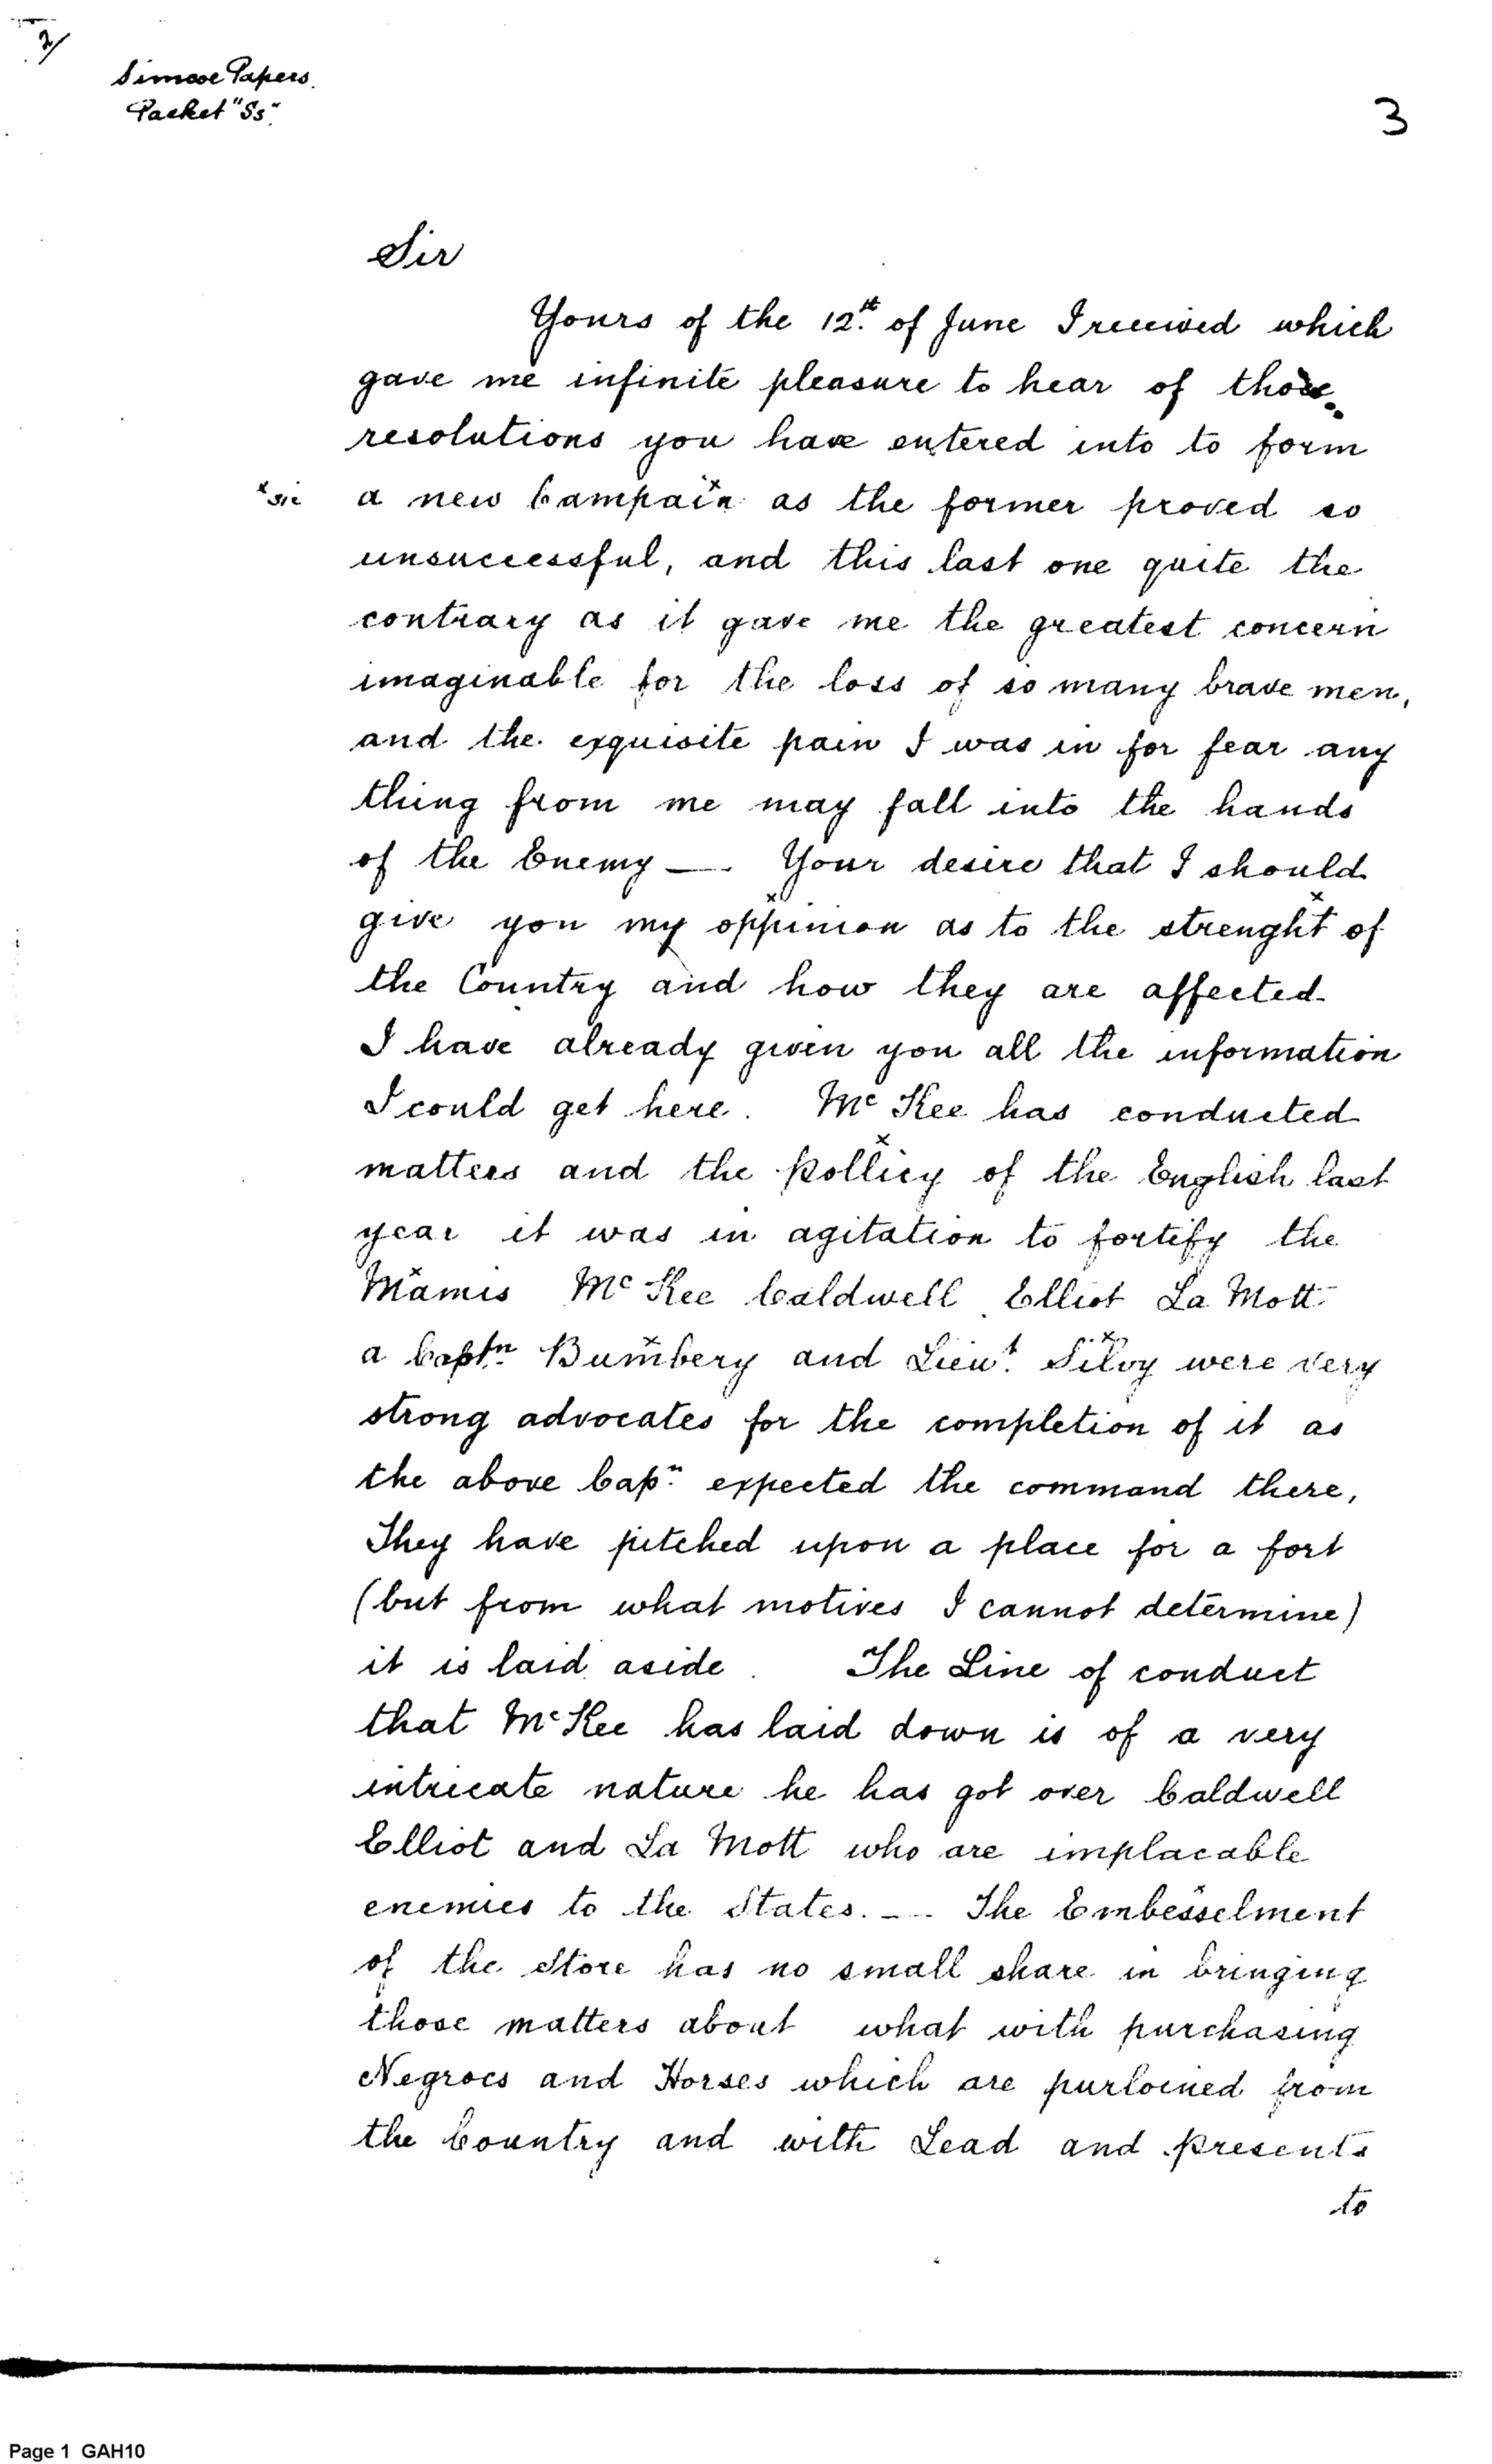 2/
Simcoe Papers.
Packet "Ss".
3
Sir
Yours of the 12th. of June I received which
gave me infinite pleasure to hear of those
resolutions you have entered into to form
x sic a new Campain x as the former proved so
unsuccessful, and this last one quite the
contrary as it gave me the greatest concern
imaginable for the loss of so many brave men,
and the exquisite pain I was in for fear any
thing from me may fall into the hands
of the Enemy —. Your desire that I should
give you my oppinion x as to the strenght x of
the Country and how they are affected
I have already given you all the information
I could get here. Mc Kee has conducted
matters and the pollicy x of the English last
year it was in agitation to fortify the
Mamis x Mc Kee Caldwell Elliot La Mott
a Captn. Bumbery x and Lieut. Silvy x were very
strong advocates for the completion of it as
the above Capn. expected the command there,
They have pitched upon a place for a fort
(but from what motives I cannot determine)
it is laid aside. The Line of conduct
that McKee has laid down is of a very
intricate nature he has got over Caldwell
Elliot and La Mott who are implacable
enemies to the States. — The Embesselment x
of the Store has no small share in bringing
those matters about what with purchasing
Negroes and Horses which are purloined from
the Country and with Lead and presents
to
Page 1 GAH10